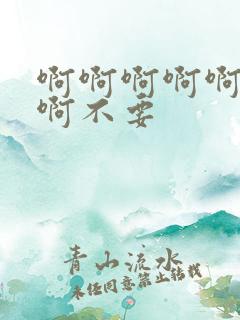 啊啊啊啊啊
啊不要
青山流水
未经同意禁止转载